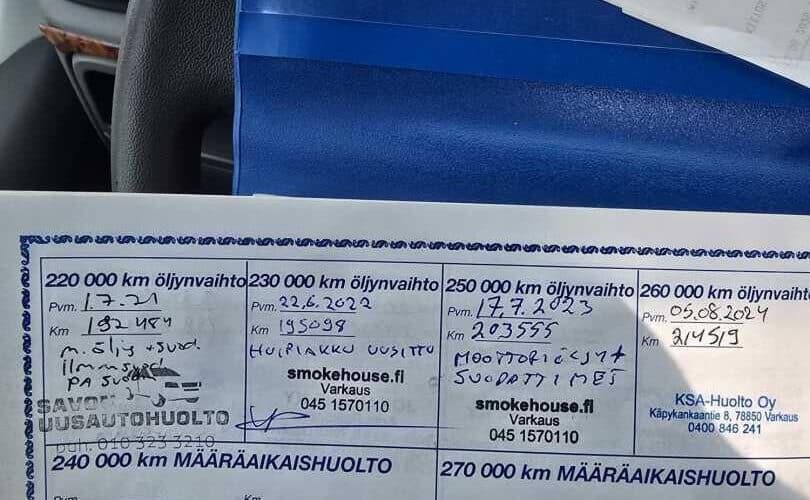 220 000 km öljynvaihto
Pvm. 1.7.21
Km 192 484
m. öljy + suod.
PA suod
SAVON
UUSAUTOHUOLTO
puh. 010 323 3210
230 000 km öljynvaihto
Pvm. 22.6.2022
Km 195098
UUSITTU
smokehouse.fi
Varkaus
045 1570110
250 000 km öljynvaihto
Pvm. 17.7.2023
Km 203555
MOOTTORIÖLJYT
SUODATTIMET
smokehouse.fi
Varkaus
045 1570110
260 000 km öljynvaihto
Pvm. 05.08.2024
Km 214519
KSA-Huolto Oy
Käpykankaantie 8, 78850 Varkaus
0400 846 241
240 000 km MÄÄRÄAIKAISHUOLTO
Pvm. Km
270 000 km MÄÄRÄAIKAISHUOLTO